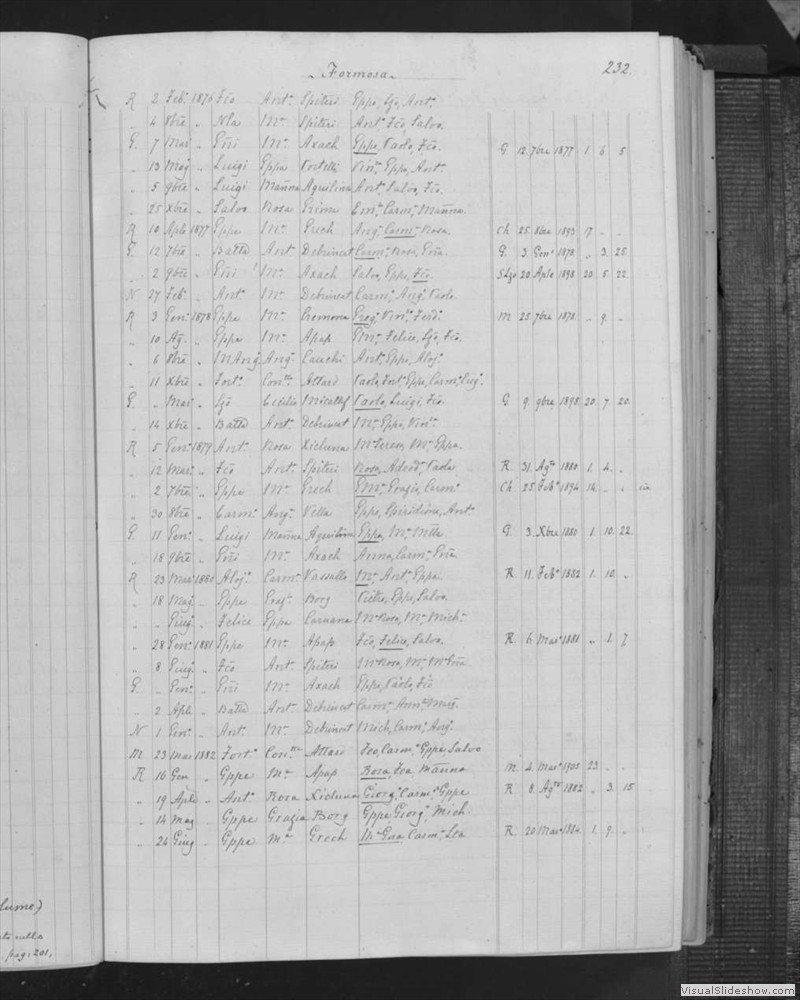 Formosa
232.
R 2 Feb. 1876 Fco Ant. Spiteri Eppe, Lgo, Ant.
" 6 8bre " Nla Ma. Spiteri Ant. Fco, Salva.
G. 7 Mar " Gni Ma. Axach Eppa, Paolo, Fco. G. 12. 7bre 1877 1. 6. 5
" 13 Mag " Luigi Eppa Vortelli Vin. Eppa, Ant.
" 5 9bre " Luigi Manna Aquilina Ant. Salva, Fco.
" 25 Xbre " Salvo Rosa Grima Em. Carm. Manna.
R 10 Aple 1877 Eppe Ma. Grech Ang. Carm. Rosa. Ch 25. 1893 17 " "
G. 12 7bre " Batta Ant. Debrincat Carm. Rosa, Gna. G. 3. Genn. 1878. " 3. 25.
" 2 9bre " Gni Ma. Axach Salva, Eppe, Fco. 20 Aple 1898 20. 5. 22.
N 27 Feb. " Ant. Ma. Debrincat Carm. Ang. Paolo.
R 3 Gen. 1878 Eppe Ma. Cremona Greg. Vin. Ferd. M 25. 7bre 1878. " 9. "
" 10 Ag. " Eppe Ma. Apap Em. Felice, Lgo, Fco.
" 6 8bre " M Ang. Ang. Cauchi Ant. Eppe, Aloj.
" 11 Xbre " Fort. Con. Attard Paolo, Fort. Eppe, Carm. Eug.
G. " Mar. " Lgo Cecilia Micallef Paolo, Luigi, Fco. G. 9. 9bre 1898. 20. 7. 20.
" 14 Xbre " Batta Ant. Debrincat Ma. Eppe, Vin.
R 5 Gen. 1879 Ant. Rosa Xicluna Ma Teresa, Ma. Eppa.
" 12 Mar. " Fco Ant. Spiteri Rosa, Adeod. Paola R. 31. Ag. 1880 1. 4. "
" 2 7bre " Eppe Ma. Grech Em. Grazia, Carm. Ch. 25. Feb. 1894 14 " "
" 30 8bre " Carm. Ang. Vella Eppe, Spiridione, Ant.
G. 11 Gen. " Luigi Manna Aquilina Eppa, Ma. G. 3. Xbre 1880 1. 10. 22.
" 18 9bre " Gni Ma. Axach Anna, Carm. Gna
R 23 Mar 1881 Aloj. Carm. Vassallo Ma. Ant. Eppa R. 11. Feb. 1882 1. 10. "
" 18 Mag " Eppe Graz. Borg Pietro, Eppe, Salva
" " Giug " Felice Eppa Caruana Ma Rosa, Ma. Mich.
" 28 Gen. 1881 Eppe Ma. Apap Fco, Felice, Salva. R. 6 Mar. 1881 " 1. 7
" 8 Giug. " Fco Ant. Spiteri Ma Rosa, Ma. Ma Gna
G. " Gen. " Gni Ma. Axach Eppe, Paolo, Fco
" 2 Aple " Batta Ant. Debrincat Carm. Ann.
N 1 Gen. " Ant. Ma. Debrincat Mich, Carm. Ang.
M 23 Mar 1882 Fort. Con. Attard Fco, Carm. Gppa Salva
R 16 Gen " Gppe Ma Apap Rosa, Fca, Manna M 4. Mar. 1905 23 " "
" 19 Aple " Ant. Rosa Xicluna Giorg. Carm. Gppe R 8. 1882 " 3. 15
" 14 Mag " Gppe Grazia Borg Gppa Giorg. Mich.
" 24 Giug " Gppe Ma Grech M. Gna Carm. R. 20 Mar 1884 1. 9. "
lume.)
nella
pag. 201.
VisualSlideshow.com